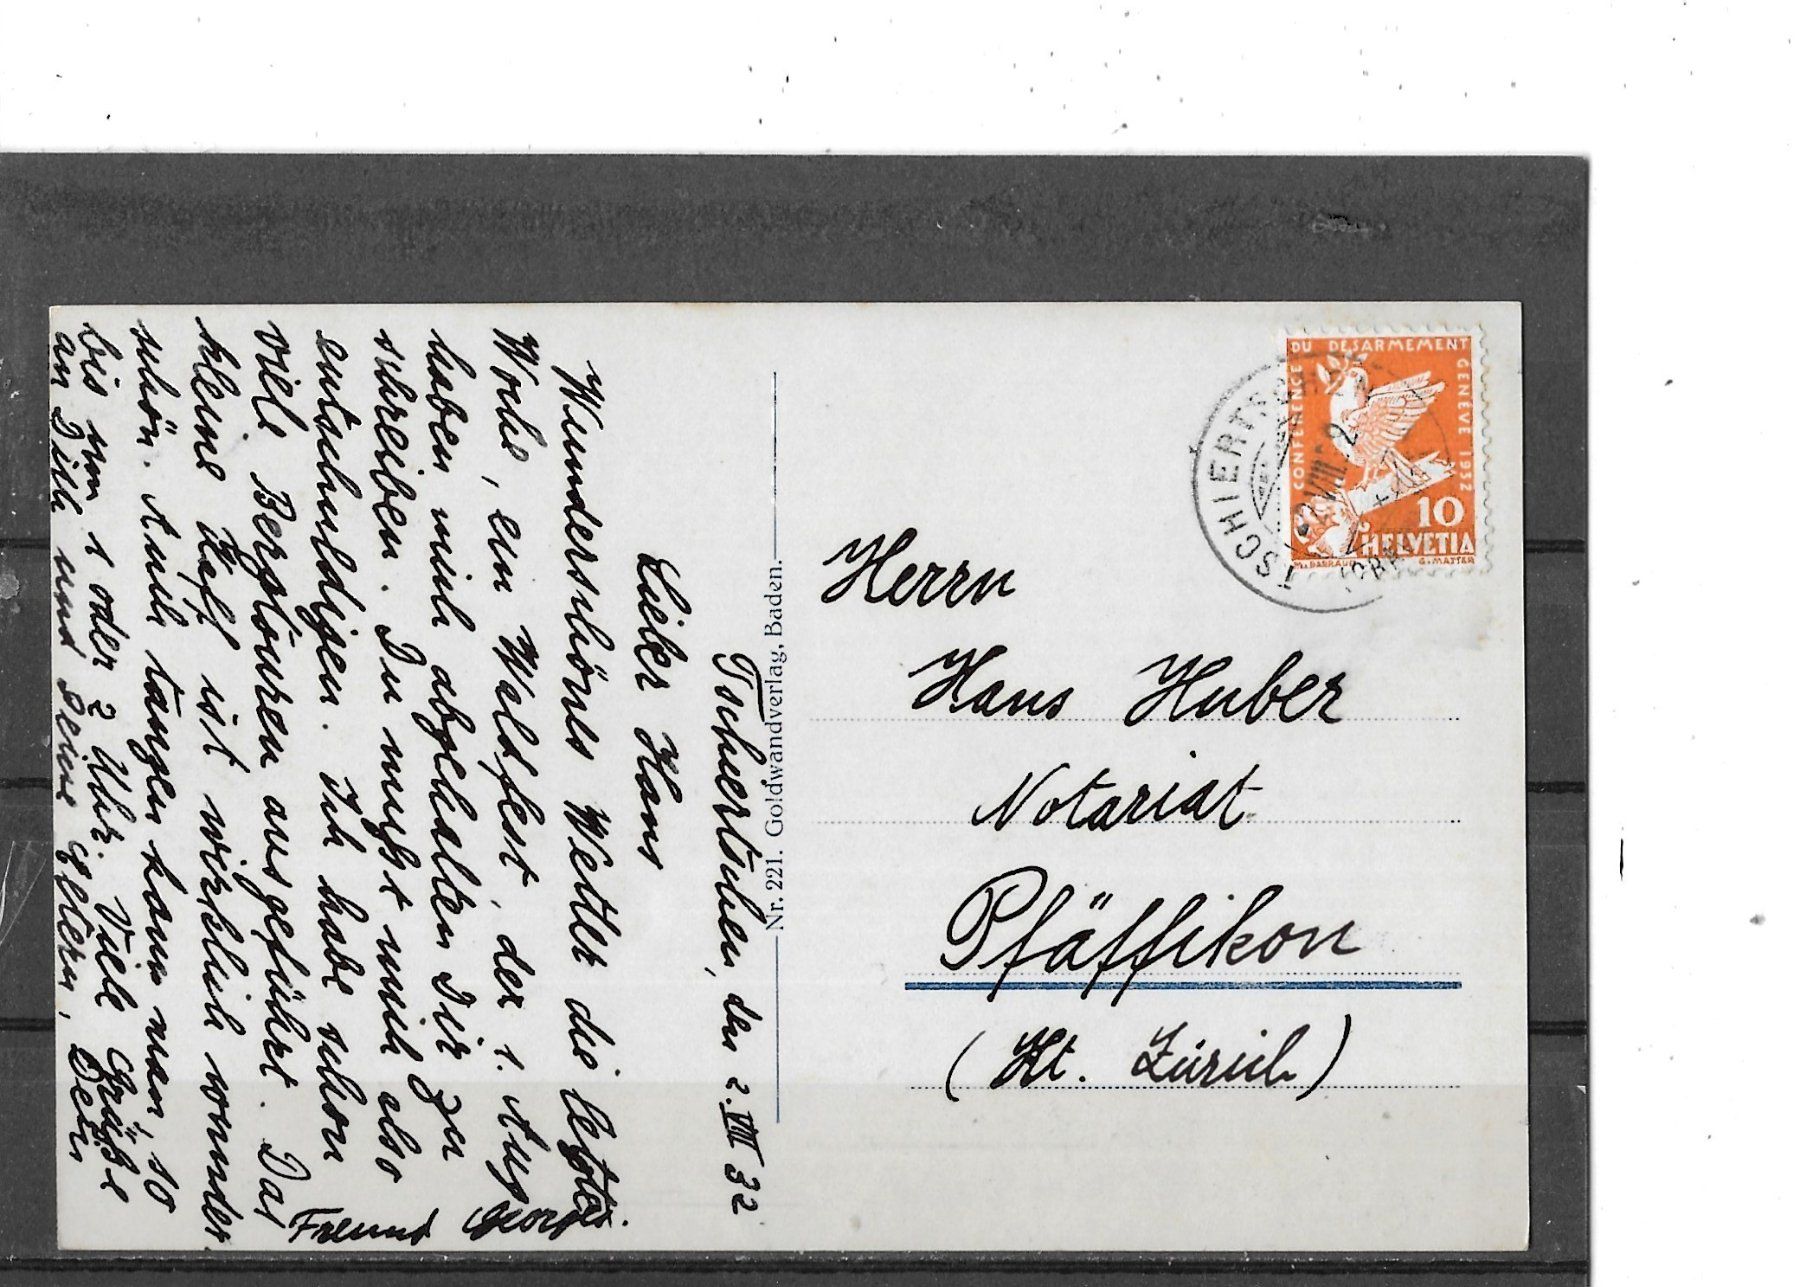 Tschiertschen, den 2. VIII 32
Lieber Hans
Wunderschönes Wetter die letzte
Woche, ein Waldfest, der 1. Aug.
haben mich abgehalten Dir zu
schreiben. Du mußt mich also
entschuldigen. Ich habe schon
viele Bergtouren ausgeführt. Das
kleine Heft ist wirklich wunder
schön. Auch tanzen kann man, so
bis um 1 oder 2 Uhr. Viele Grüße
an Dich und Deine Eltern, Dein
Freund Georges.
Nr. 221. Goldwandverlag, Baden.
CONFERENCE DU DESARMEMENT GENÈVE 1932
10
HELVETIA
G. MATTER
TSCHIERTSCHEN
2.VIII.32
Herrn
Hans Huber
Notariat
Pfäffikon
(Kt. Zürich)